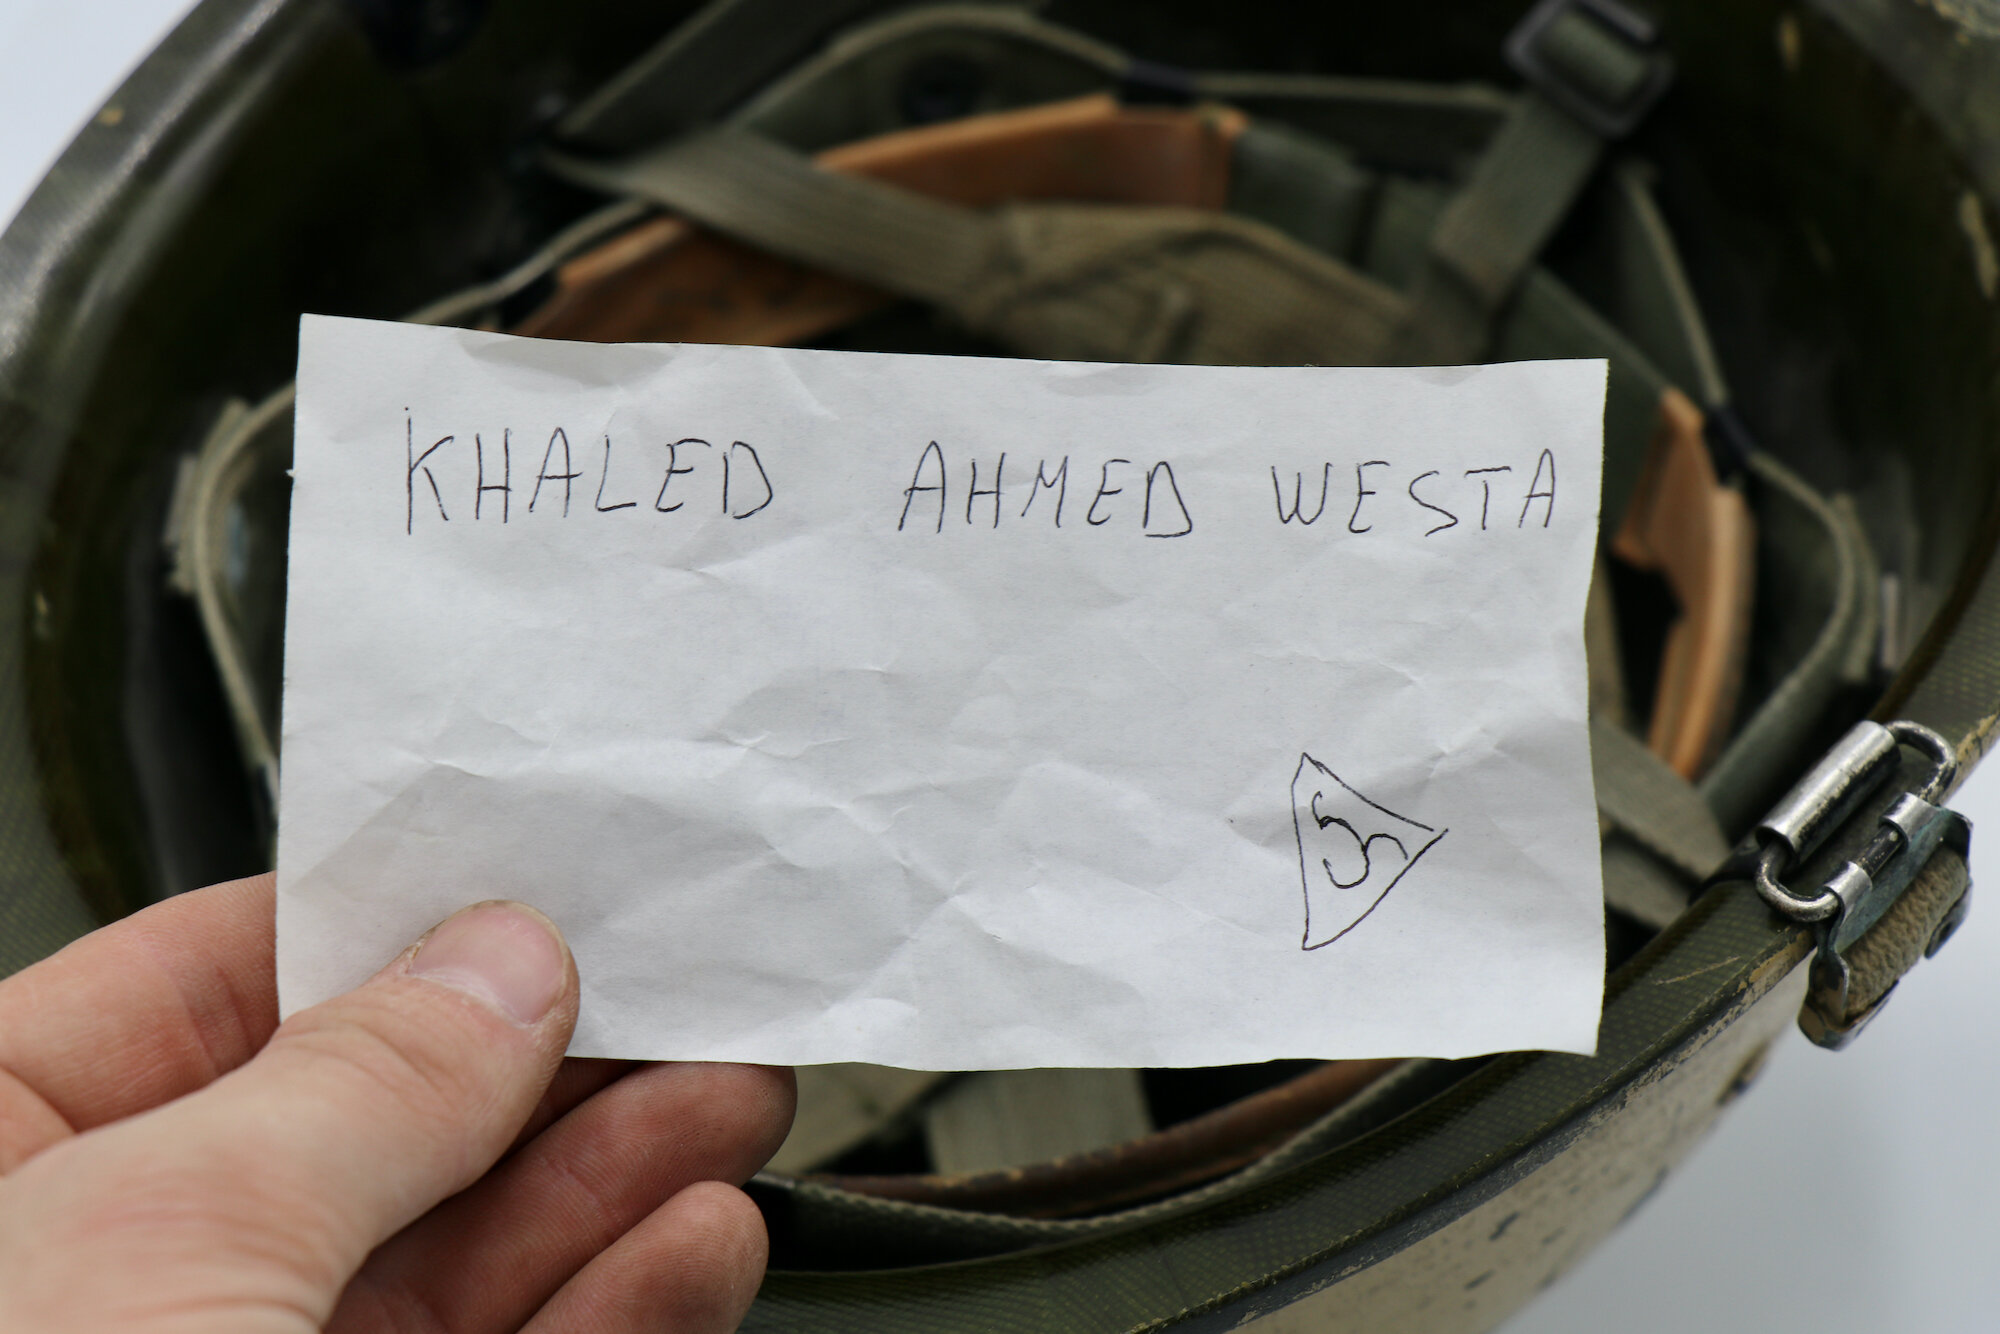 KHALED AHMED WESTA